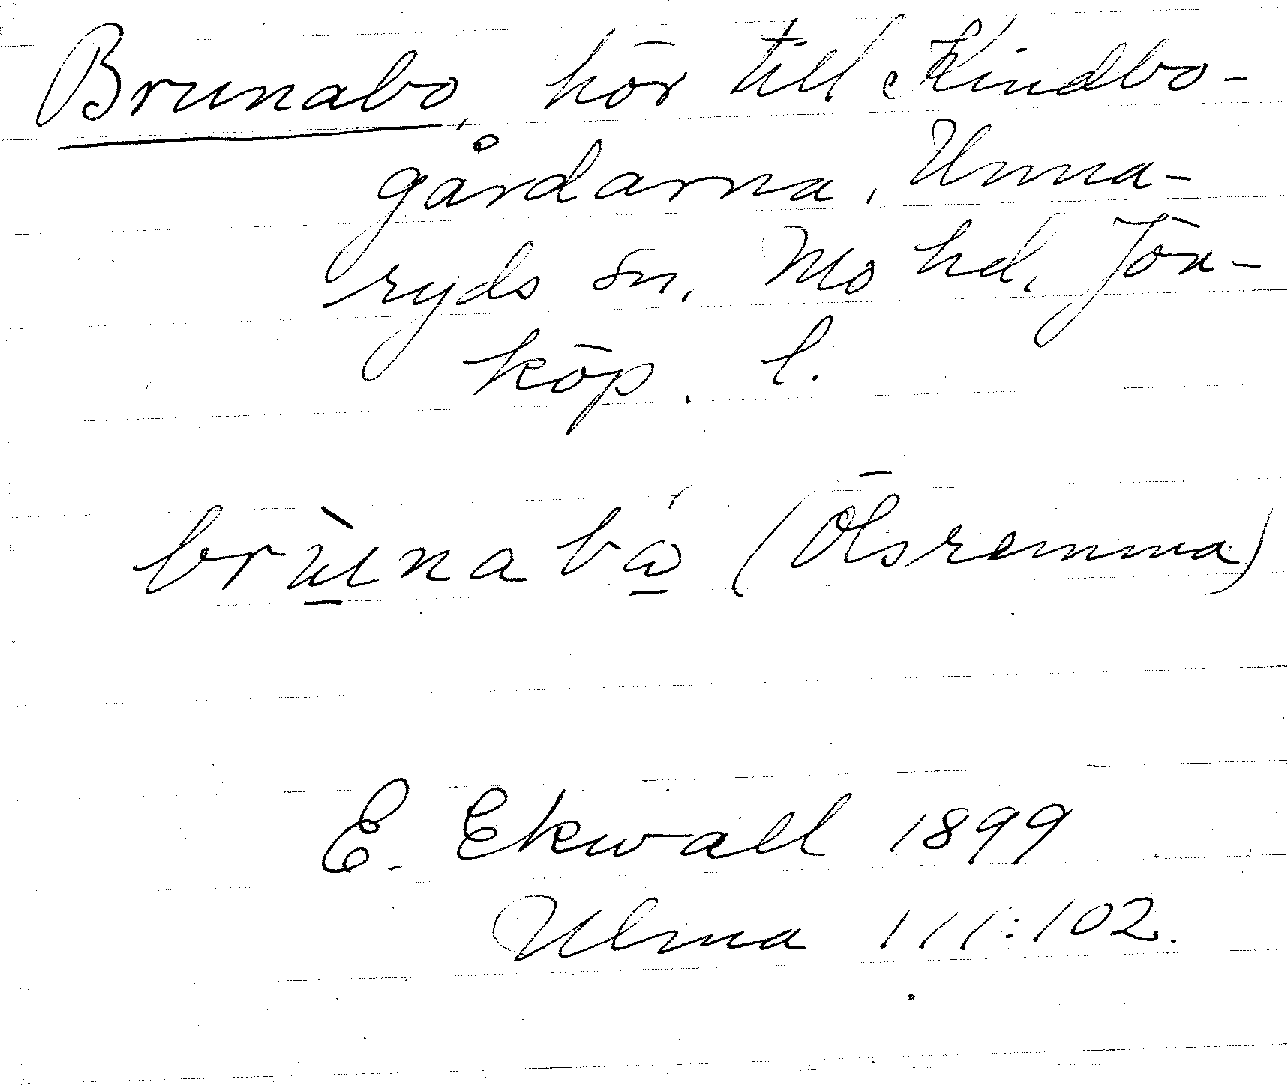 Brunabo, hör till Kindbo-
gårdarna, Unna-
ryds sn, Mo hd, Jön-
köp. l.
brùna bå (Ölsremma)
E. Ekwall 1899
Ulma 111:102.